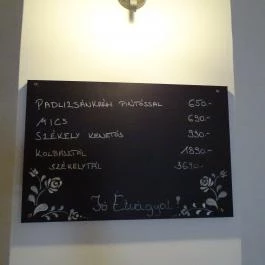 PADLIZSÁNKRÉM PIRÍTÓSSAL 650.-
MICS 690.-
SZÉKELY KENETÖS 990.-
KOLBÁSZTÁL 1890.-
SZÉKELYTÁL 3690.-
Jó Étvágyat!